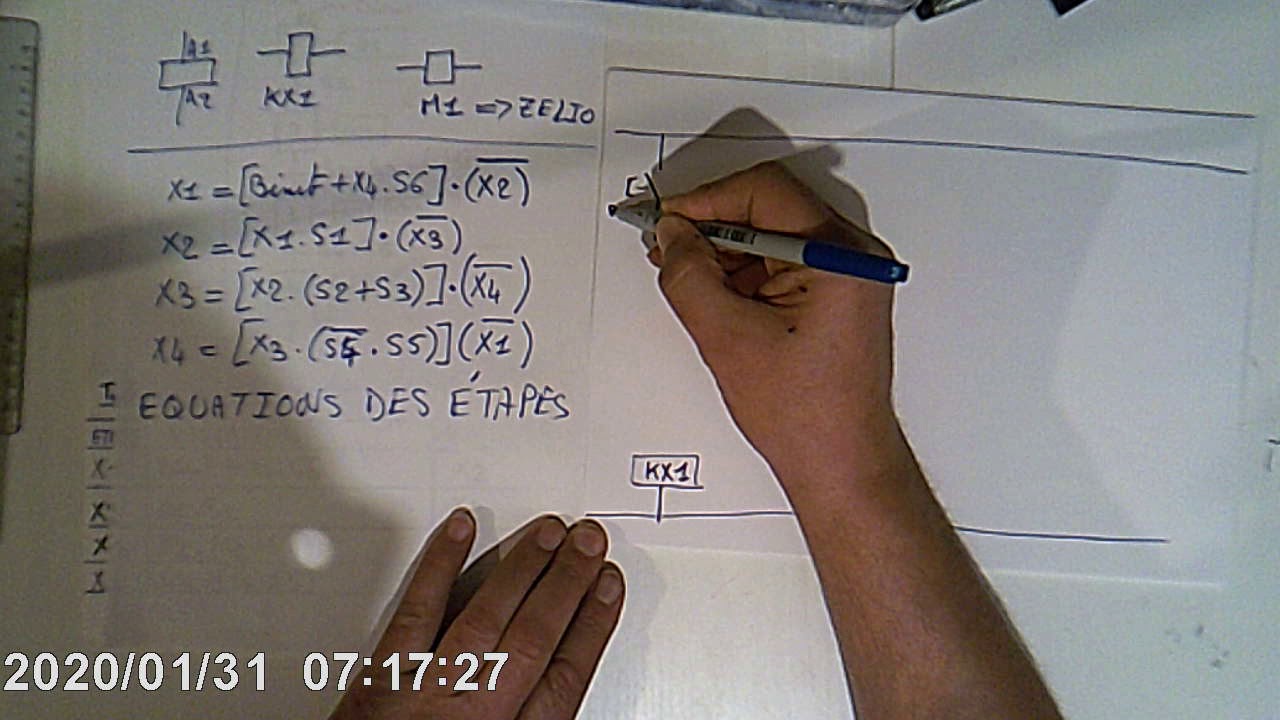 A1
A2
KX1
M1 => ZELIO
X1 = [Binit + X4 . S6] . (X̅2̅)
X2 = [X1 . S1] . (X̅3̅)
X3 = [X2 . (S2 + S3)] . (X̅4̅)
X4 = [X3 . (S̅4̅ . S5)] (X̅1̅)
EQUATIONS DES ÉTAPES
KX1
2020/01/31 07:17:27